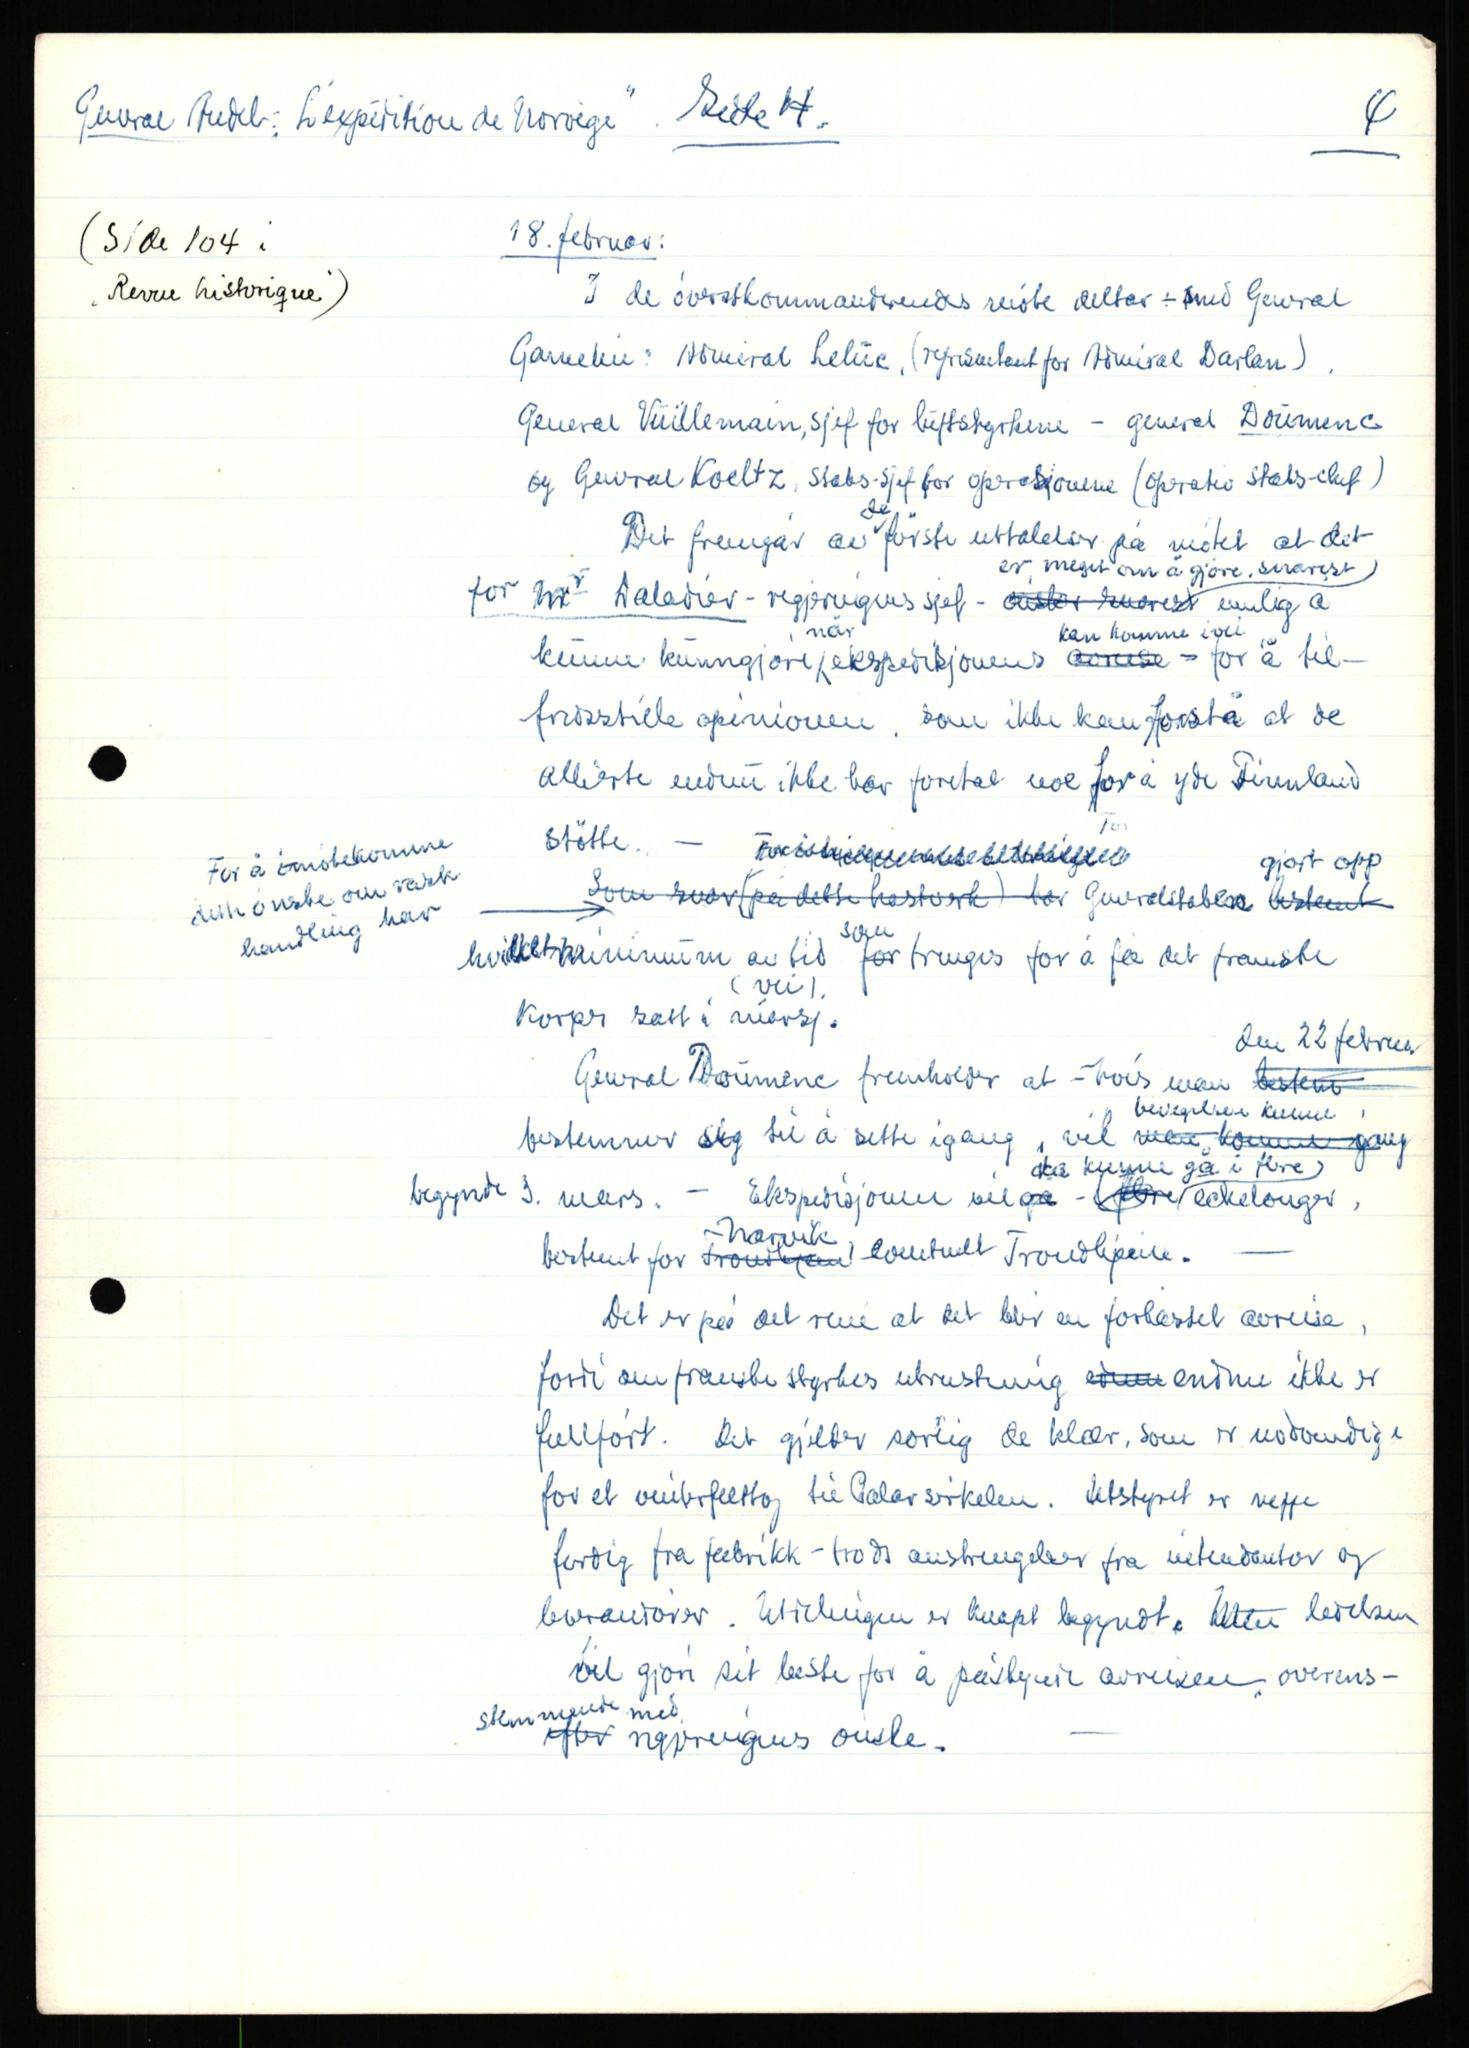 General Audet: L'expédition de Norvège". Side 4.
4
(Side 104 i
"Revue historique")
18. februar:
I de överstkommanderendes möte deltar - med General
Gamelin: Admiral Leluc, (representant for Admiral Darlan),
General Vuillemain, sjef for luftstyrkene - general Doumenc
og General Koeltz, stabs-sjef for operasjonene (operativ stabs-chef)
de
Det fremgår av förste uttalelser på mötet at det
er meget om å gjöre, snarest
for Mr Daladier - regjeringens sjef - önsker snarest mulig å
når kan komme i vei
kunne kunngjöre ekspedisjonens avreise - for å til-
fredsstille opinionen, som ikke kan forstå at de
allierte endnu ikke har foretat noe for å yde Finnland
stötte. -
For å imötekomme
dette önske om rask
handling har
gjort opp
Som svar (på dette hastverk) har Generalstaben bestemt
som
hvilket minimum av tid for trenges for å få det franske
(vei).
Korps satt i marsj.
den 22 februar
General Doumenc fremholder at - hvis man bestem
bevegelsen kunne
bestemmer sig til å sette igang, vil man komme gang
da kunne gå i flere
begynde 3. mars. - Ekspedisjonen vil gå - flere echelonger,
- Narvik
bestemt for Trondhjem eventuelt Trondhjem. -
Det er på det rene at det blir en forhastet avreise,
fordi om franske styrkes utrustning endnu ikke er
fullfört. Det gjelder særlig de klær, som er nödvendige
for et vinterfelttog til Polarsirkelen. Utstyret er neppe
ferdig fra fabrikk - trods anstrengelser fra intendantur og
leverandörer. Utdelingen er knapt begyndt. Men ledelsen
vil gjöre sit beste for å påskynde avreisen, overens-
stemmende med
efter regjeringens önske. -